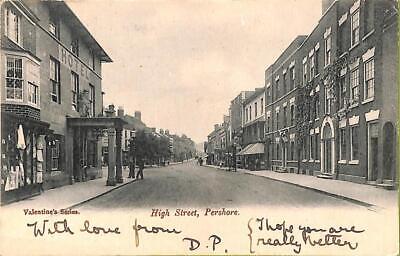 HOTEL
Valentine's Series.
High Street, Pershore.
With love from D.P. {I hope you are
really better